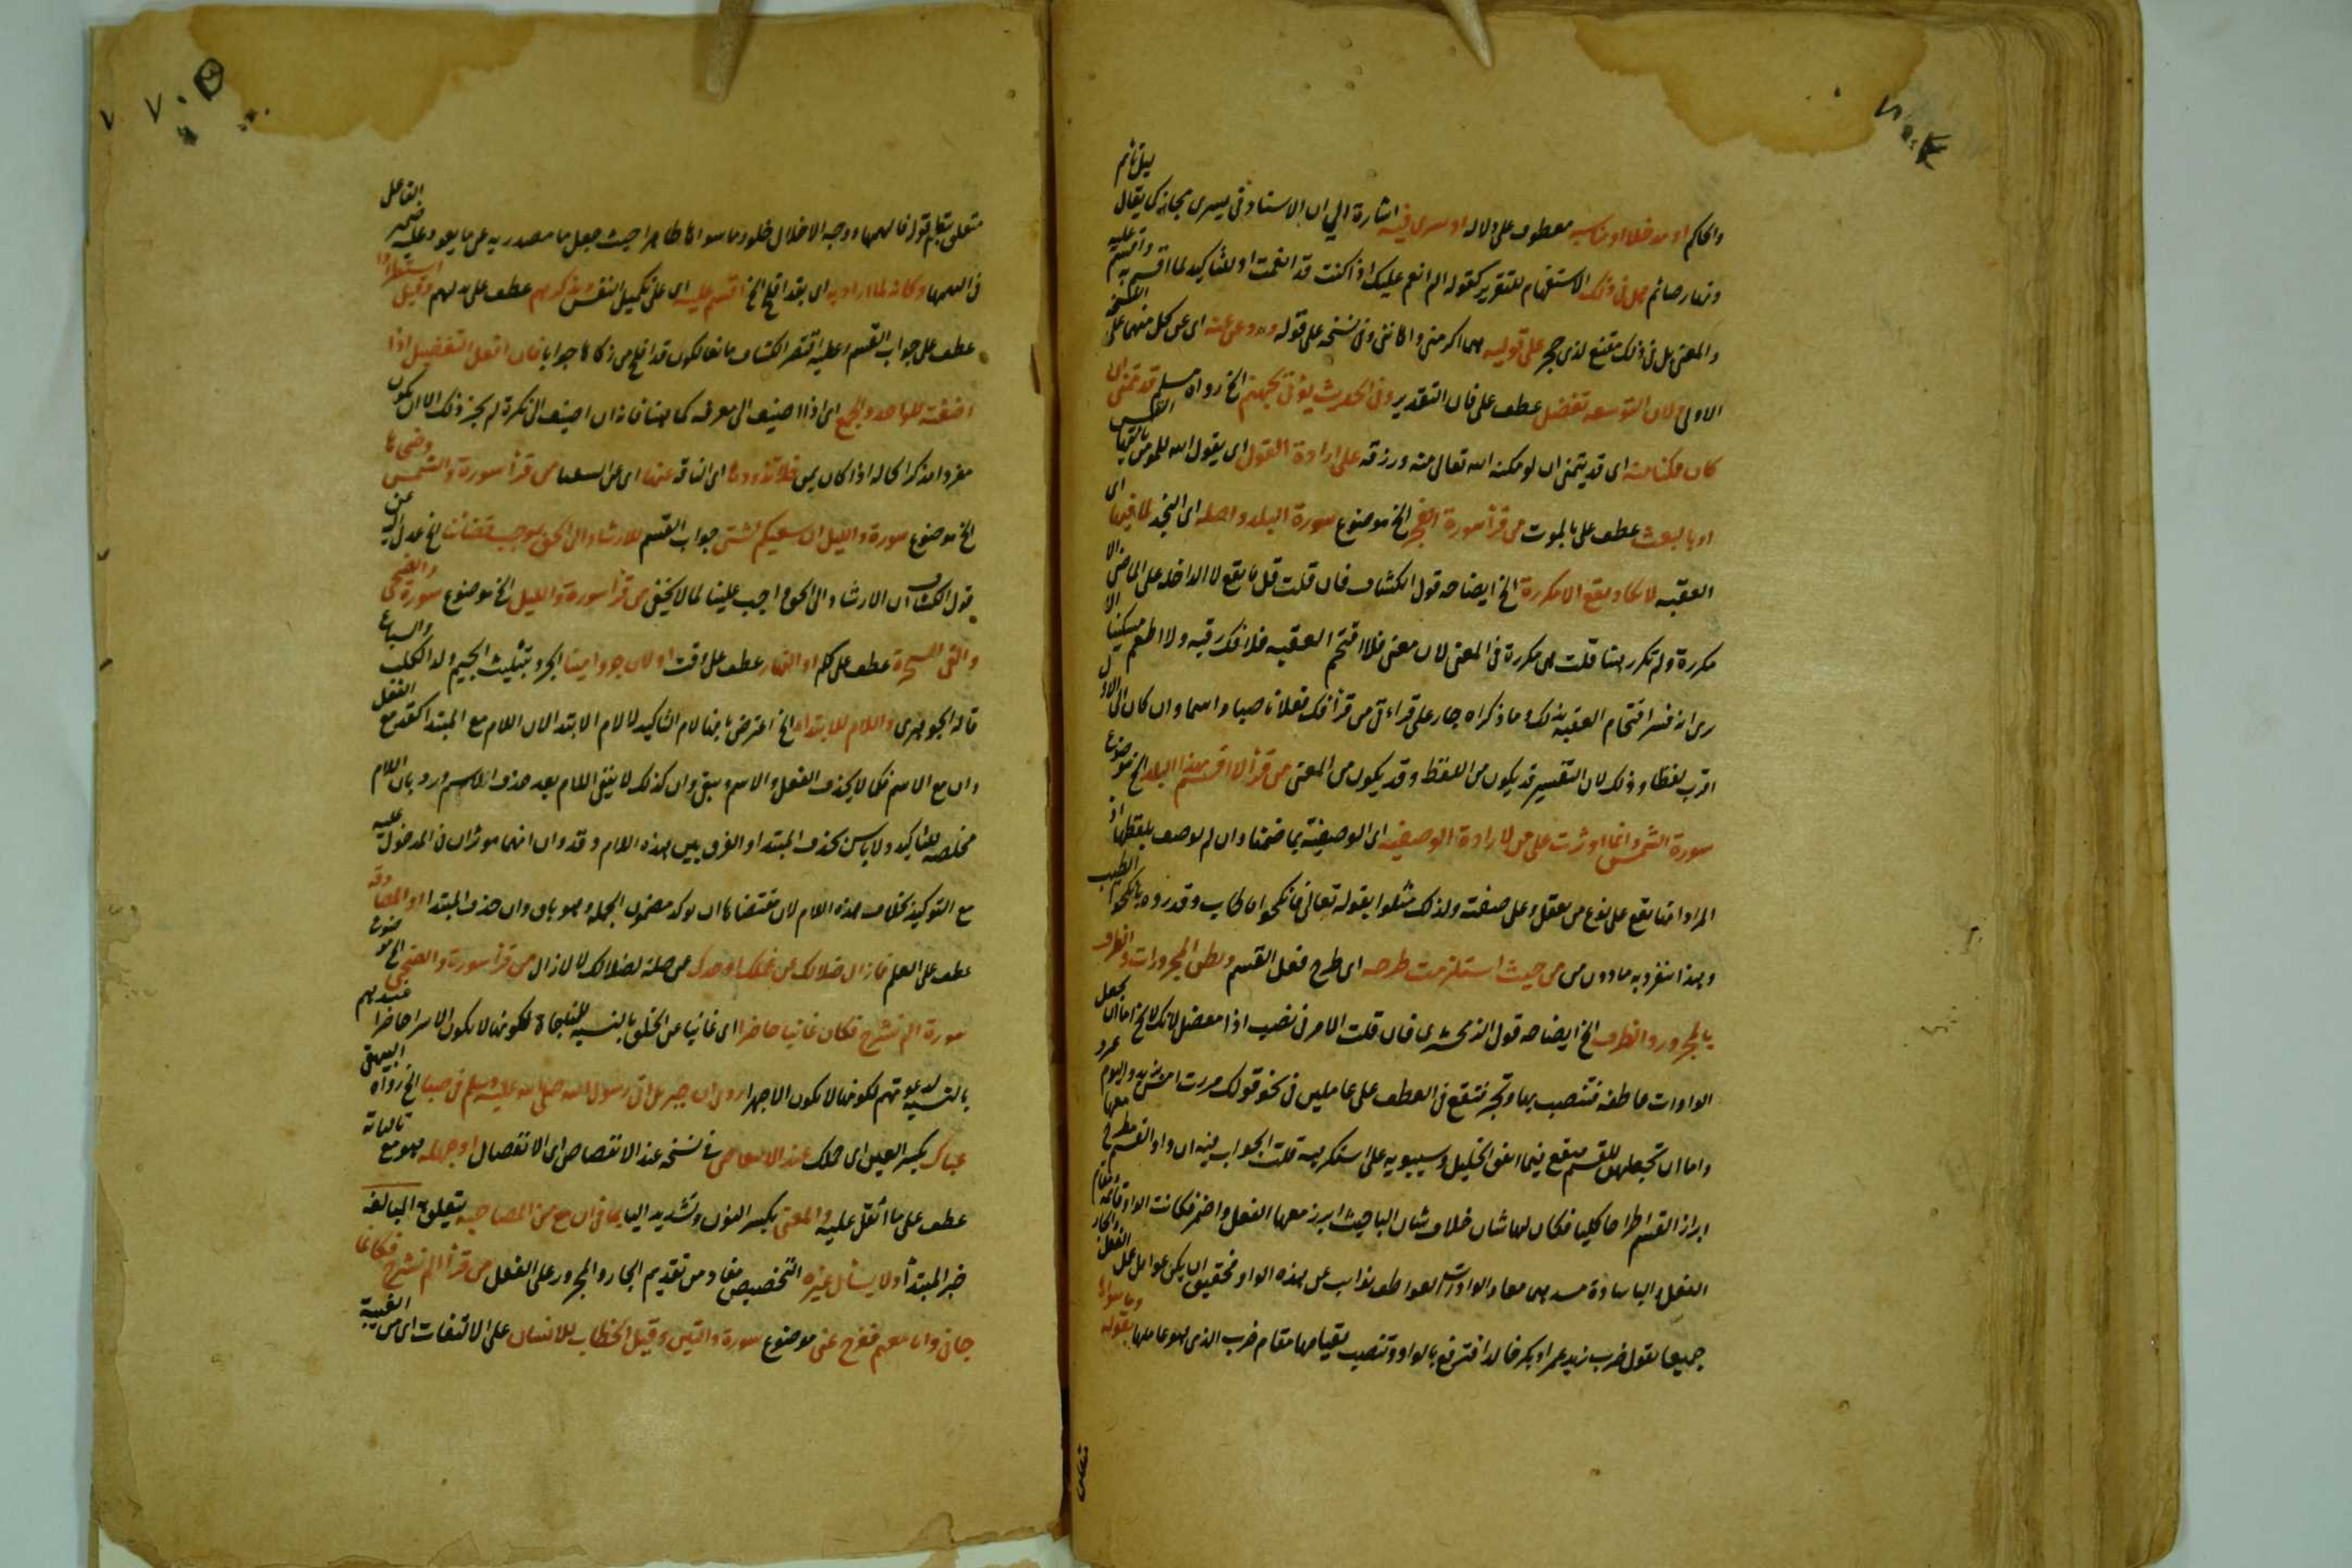 والحاكم او مدخلا او مناسبه معطوف على دلاله او سرى فيه اشارة الى ان الاسناد في يسرى مجازي كما يقال ليل نائم
ونهار صائم هل في ذلك الاستفهام للتقرير كقوله الم انعم عليك اذا كنت قد انعمت او للتاكيد لما اقسم به واقسم عليه
والمعنى بل في ذلك مقنع لذي حجر على قوليه هي اكرمني واهانني وفي نسخه على قوله وردعه عنه اى عن كل منهما على النسخة
الاولى لان التوسعه تفضل عطف على فان التقدير وفي الحديث يؤتى بجهنم الخ رواه مسلم قد تمنى ان
كان ممكنا منه اى قد يتمنى ان لو مكنه الله تعالى منه ورزقه على ارادة القول اى يقول الله للمومن
او بالبعث عطف على بالموت من قرأ سورة الفجر الخ موضوع سورة البلد واصله اى النجد لما فيهما اى
العقبه لا تكاد يقع الا مكررة الخ ايضاحه قول الكشاف فان قلت قل ما يقع لا الداخله على الماضى الا
مكررة ولم تكرر هنا قلت هى مكررة في المعنى لان معنى فلا اقتحم العقبه فلا فك رقبه ولا اطعم مسكينا الا
ترى انه فسر اقتحام العقبه بذلك وما ذكراه جار على قراءة من قرأ فك فعلا ناصبا واسما وان كان الى الاول
اقرب لفظا وذلك لان التفسير قد يكون من اللفظ وقد يكون من المعنى من قرأ لا اقسم بهذا البلد الخ موضوع
سورة الشمس وانما اوثرت على من لارادة الوصفيه اى الوصفية بما ضمنا وان لم توصف بلفظها اذ
المراد انها تقع على نوع من يعقل وعلى صفته ولذلك مثلوا بقوله تعالى فانكحوا ما طاب وقدروه بانكحوا الطيب
وبهذا تنفرد به ما دون من من حيث استلزمت طرحه اى طرح فعل القسم وبطن المجرورات والظرف
بالمجرور والظرف الخ ايضاحه قول الزمخشرى فان قلت الامر في نصب اذا معضل لانك لا تخ اما ان تجعل
الواوات عاطفه فتنصب بها وتجر فتقع في العطف على عاملين في نحو قولك مررت امس بزيد واليوم عمرو
واما ان تجعلهن للقسم فتقع فيما اتفق الخليل وسيبويه على استكراهه قلت الجواب فيه ان واو القسم مطرح معها
ابراز القسم اطراحا كليا فكان لها شان خلاف شان الباء حيث ابرز معها الفعل واضمر فكانت الواو قائمه مقام
الفعل والباء سادة مسدهما معا والواوات العواطف نوايب عن هذه الواو فحقيق ان يكن عوامل عمل الفعل والجار
جميعا تقول ضرب زيد عمرا وبكر خالدا فترفع بالواو وتنصب لقيامها مقام ضرب الذى هو عاملهما وما سواها بقوله
متعلق بتعليم قوله فالهمها ووجه الاخلال خلو وما سواها ظاهرا حيث جعل ما مصدريه عن ما يعود عليه ضمير الفاعل
في الهمها وكانه لما اراد به اى بقد افلح الخ اقسم عليه اى على تكميل النفس وبذكرهم عطف على بدلهم وقيل استطرادا
عطف على جواب القسم وعليه اقتصر الكشاف مانعا لكون قد افلح من زكاها جوابا فان افعل التفضيل اذا
اضفته للواحد والجمع اى اذا اضيف الى معرفه كما هنا فانه ان اضيف الى نكرة لم يجز ذلك الا ان يكون
مفردا مذكرا كما له اذا كان بمن فلا تذودوها اى الناقه عنها اى عن السقيا من قرأ سورة والشمس وضحاها
الخ موضوع سورة والليل ان سعيكم لشتى جواب القسم للارشاد الى الحق بموجب قضائنا الخ عدل اليه عن
قول الكشاف ان الارشاد الى الحق واجب علينا لما لا يخفى من قرأ سورة والليل الخ موضوع سورة والضحى
والقى السحرة عطف على كلم او النهار عطف على وقت او لان جروا ميتا الجرو بتثليث الجيم ولد الكلب والسباع
قاله الجوهرى واللام للابتداء الخ اعترض بانها لام التاكيد لا لام الابتدا لان اللام مع المبتدا كقد مع الفعل
وان مع الاسم فكما لا يحذف الفعل والاسم ويبقى وان كذلك لا يبقى اللام بعد حذف الاسم ورد بان اللام
مخلصه للتاكيد ولا باس بحذف المبتدا والفرق بين هذه اللام وقد وان انهما موثران في المدخول عليه
مع التوكيد بخلاف هذه اللام لان مقتضاها ان توكد مضمون الجمله وهو باق وان حذف المبتدا او المصادفه
عطف على العلم فازال ضلالك عن عمك او جدك عن صلة لضلالك لا لازال من قرأ سورة والضحى الخ موضوع
سورة الم نشرح فكان غائبا حاضرا اى غائبا عن الخلق بالنسبه للمناجاة لكونها لا تكون الا سرا حاضرا عندهم
بالنسبه لدعوتهم لكونها لا تكون الا جهرا روى ان جبريل اتى رسول الله صلى الله عليه وسلم في صباه الخ رواه البيهقى
عناك بكسر العين اى حملك عند الانقاض في نسخه عند الانتقاض اى الانفصال او جهله فهو مع تالياته
عطف على ما اثقل عليه والمعنى بكسر النون وتشديد اليا بما في ان مع من المصاحبه يتعلق به المبالغه
خبر المبتدا ولا يسأل غيره التخصيص مفاد من تقديم الجار والمجرور على الفعل من قرأ الم نشرح فكانما
جاني وانا مغتم ففرج عنى موضوع سورة والتين وقيل الخطاب للانسان على الالتفات اى من الغيبة